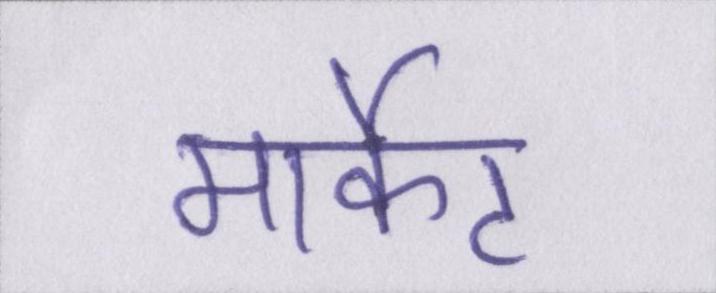 मार्केट